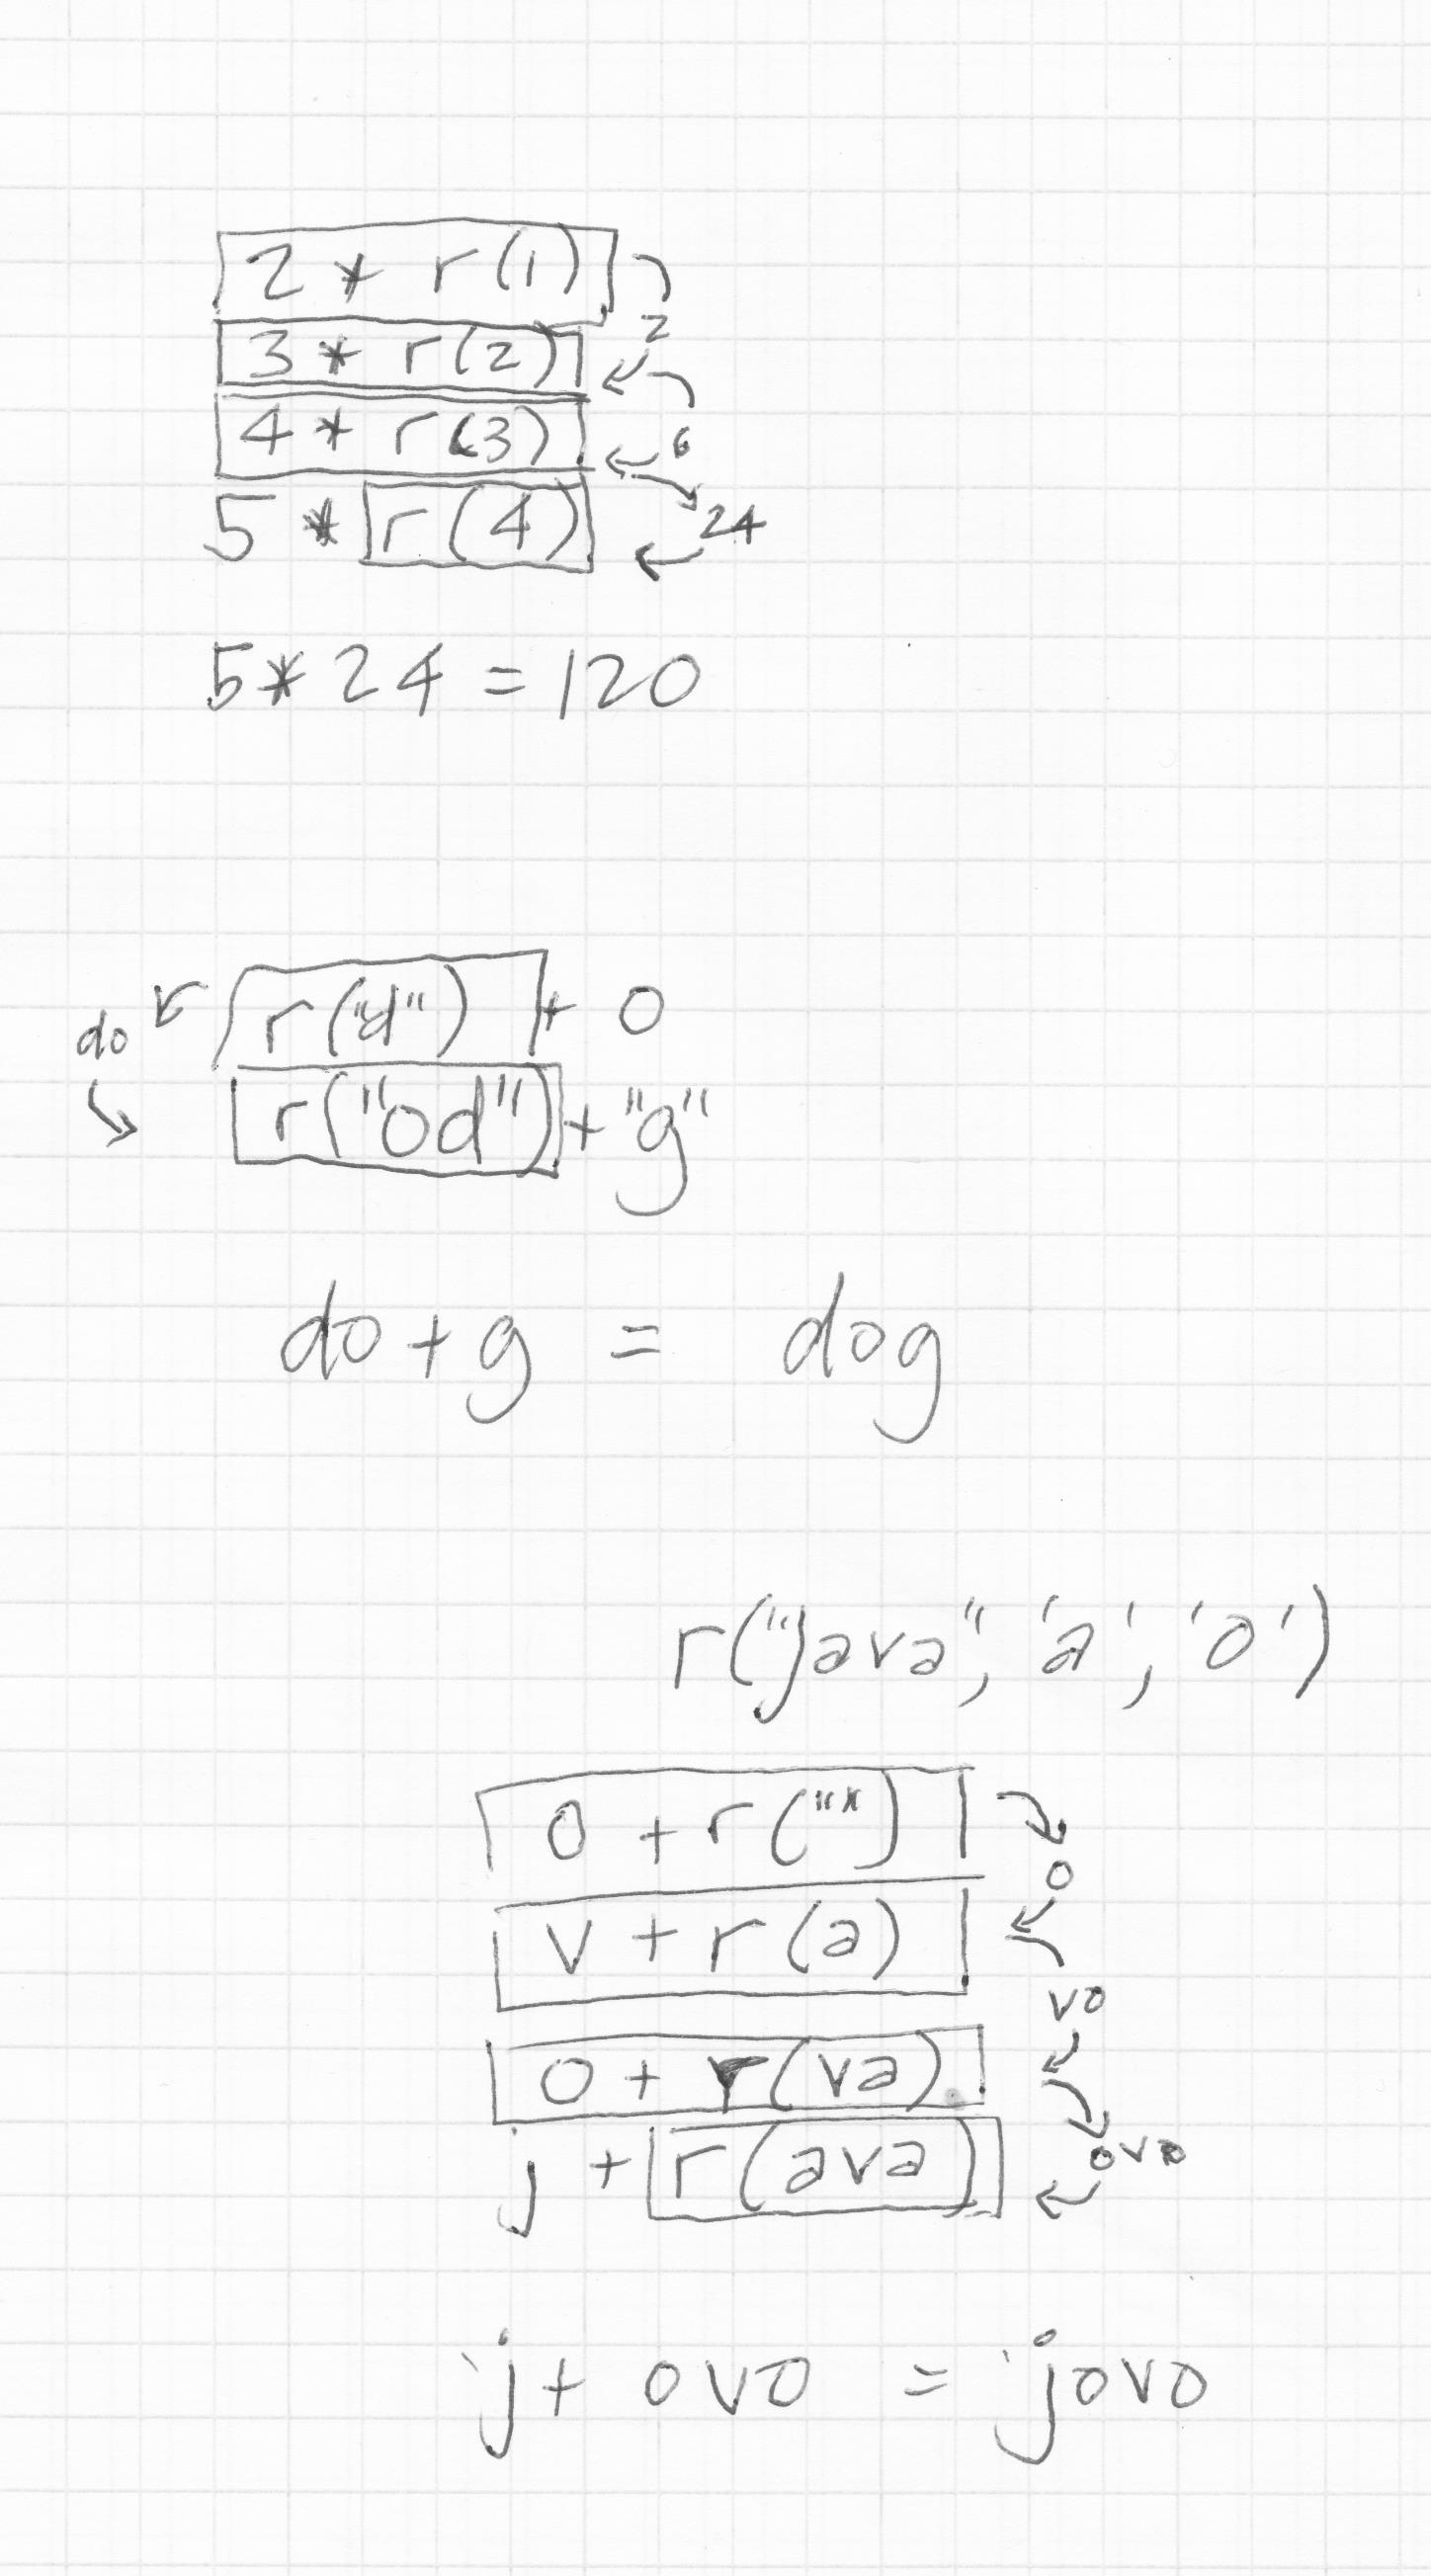 2 * r(1)
2
3 * r(2)
4 * r(3)
6
5 * r(4)
24
5 * 24 = 120
r("d") + o
do
r("od") + "g"
do + g = dog
r("java", 'a', 'o')
o + r("")
o
v + r(a)
vo
o + r(va)
j + r(ava)
ovo
j + ovo = jovo